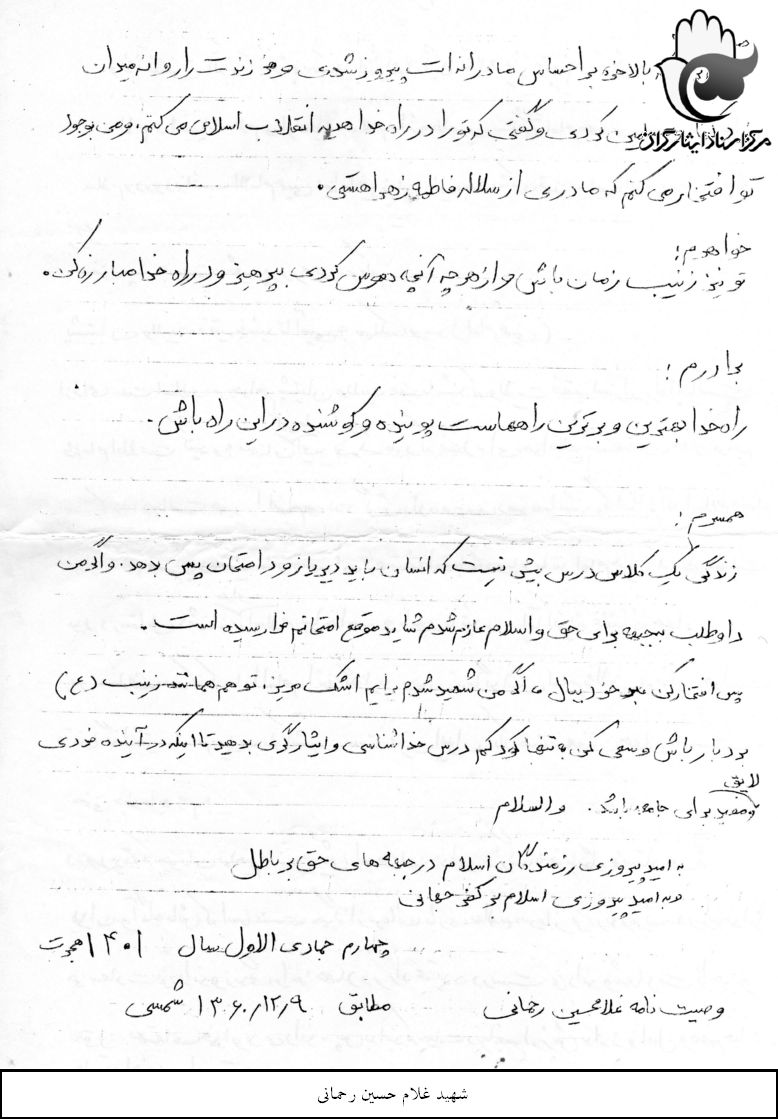 بالاخره بر احساس مادرانه‌ات پیروز شدی و فرزندت را روانه میدان
کردی و گفتی که تو را در راه خدا هدیه به انقلاب اسلامی می‌کنم، و من بوجود
مرکز اسناد ایثارگران
تو افتخار می‌کنم که مادری از سلاله فاطمه زهرا هستی.
خواهرم:
تو نیز زینب زمان باش و از هر چه آنچه هوس کردی بپرهیز و در راه خدا مبارزه کن.
برادرم:
راه خدا بهترین و برترین راههاست پوینده و کوشنده در این راه باش.
همسرم:
زندگی یک کلاس درس بیش نیست که انسان باید دیر یا زود امتحان پس بدهد. و اگر من
داوطلب جبهه برای حق و اسلام عازم شدم شاید موقع امتحانم فرا رسیده است.
پس افتخار کن به خود ببال و اگر من شهید شدم برایم اشک مریز، تو هم همانند زینب (ع)
بردبار باش و سعی کن به تنها کودکم درس خداشناسی و ایثارگری بدهید تا اینکه در آینده فردی
لایق
و مفید برای جامعه باشد. والسلام
به امید پیروزی رزمندگان اسلام در جبهه های حق بر باطل
و به امید پیروزی اسلام بر کفر جهانی
چهارم جمادی الاول سال ۱۴۰۱ هجرت
وصیت نامه غلامحسین رحمانی مطابق ۱۳۶۰/۱۲/۹ شمسی
شهید غلام حسین رحمانی